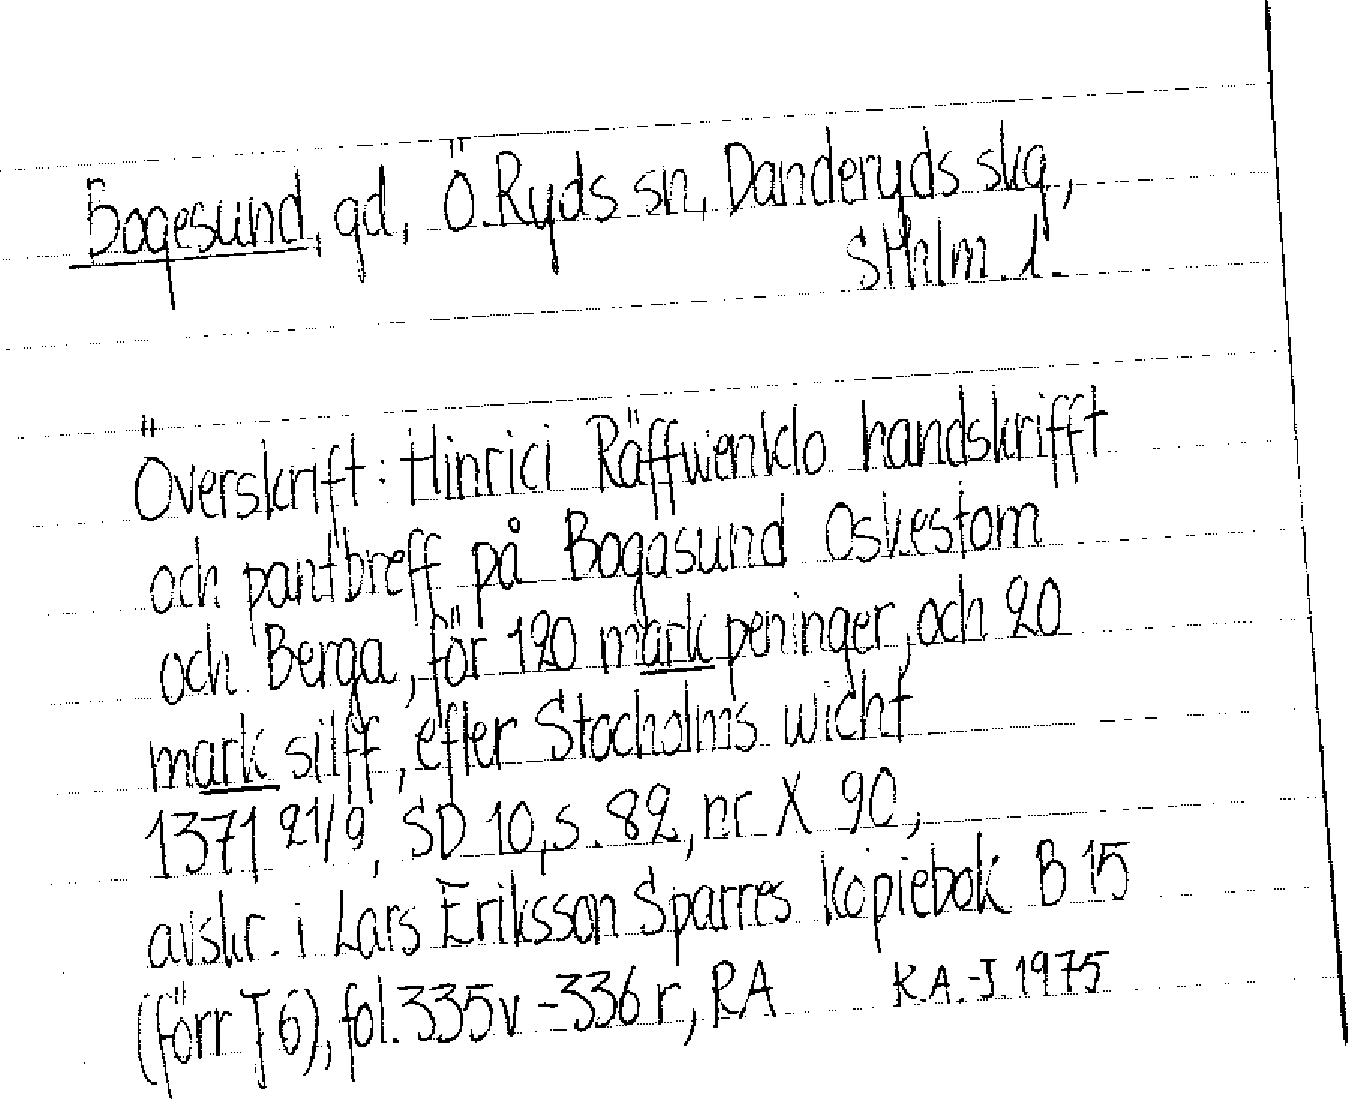 Bogesund, gd, Ö. Ryds sn, Danderyds skg,
Sthlm l.
Överskrift: Hinrici Räffwenklo handskrifft
och pantbreff på Bogasund Oskestom
och Berga, för 120 mark peninger, och 20
mark silff, efter Stocholms wicht
1371 21/9, SD 10, s. 82, nr X 90,
avskr. i Lars Eriksson Sparres kopiebok B 15
(förr T 6), fol. 335v-336r, RA K.A.-J 1975